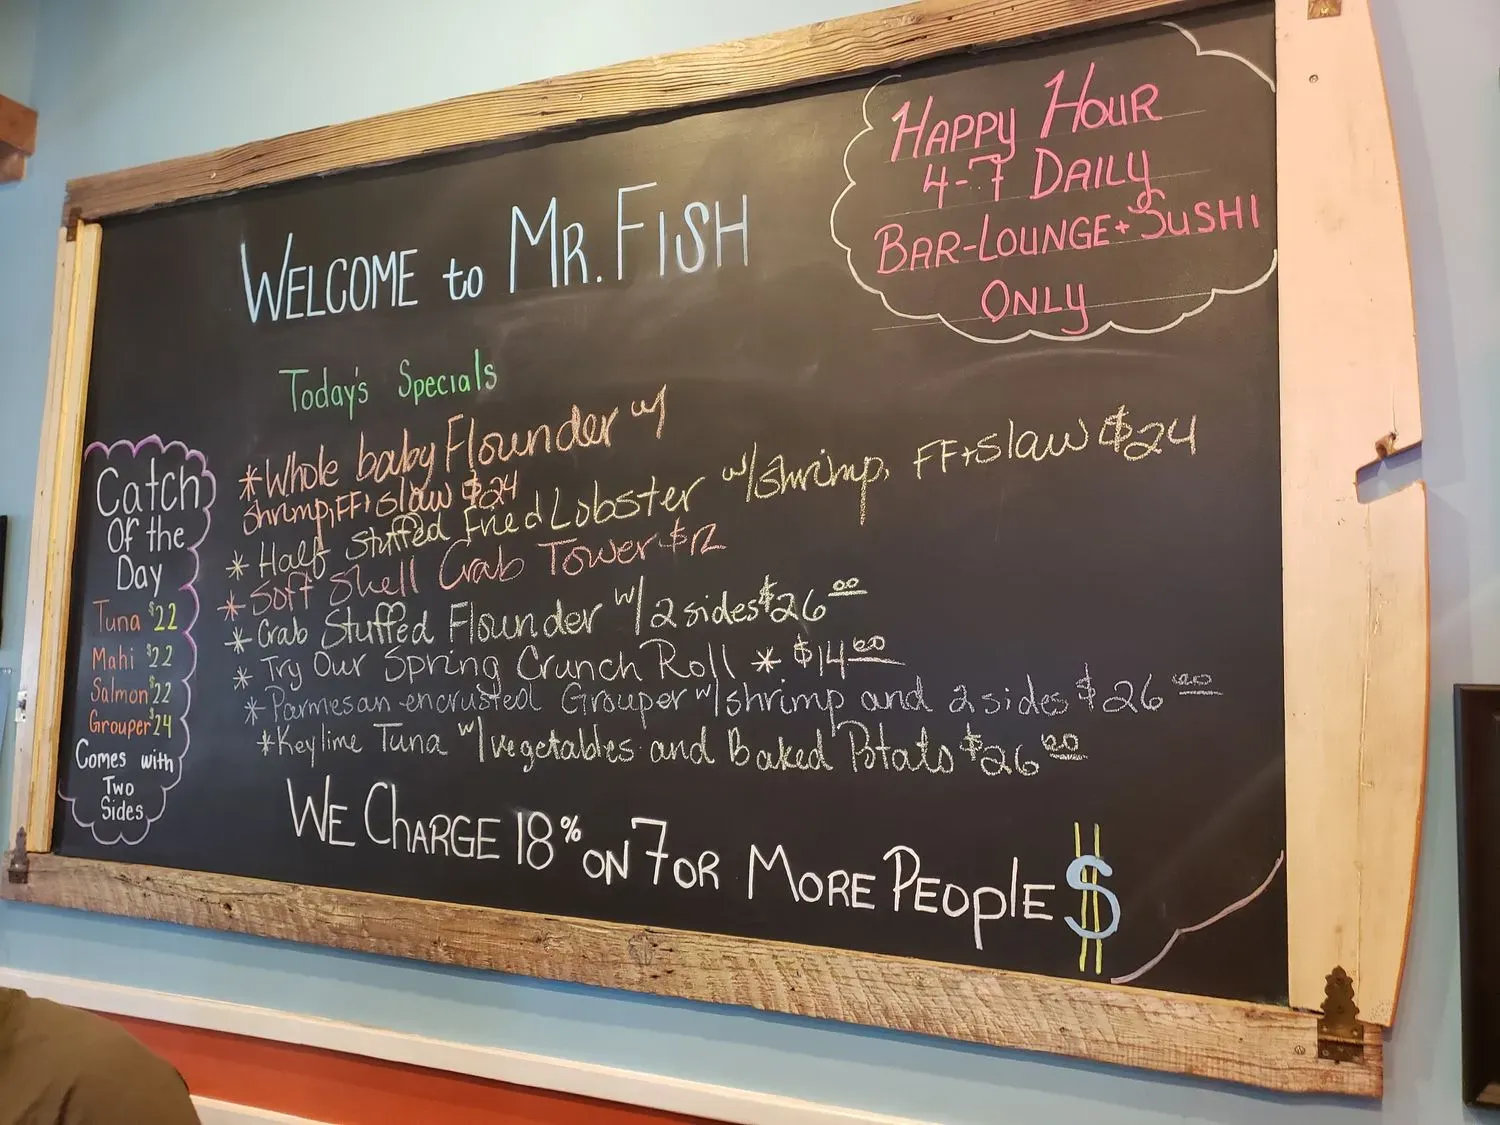 WELCOME to MR. FISH
HAPPY HOUR
4-7 DAILY
BAR-LOUNGE + SUSHI
ONLY
Today's Specials
*Whole baby Flounder w/
shrimp, FF + slaw $24
* Half Stuffed Fried Lobster w/shrimp, FF+slaw $24
* Soft Shell Crab Tower $12
* Crab Stuffed Flounder w/2 sides $26.00
* Try Our Spring Crunch Roll * $14.00
*Parmesan-encrusted Grouper w/shrimp and 2 sides $26.00
*Keylime Tuna w/vegetables and Baked Potato $26.00
Catch
Of the
Day
Tuna $22
Mahi $22
Salmon $22
Grouper $24
Comes with
Two
Sides
WE CHARGE 18% ON 7 OR MORE PEOPLE $